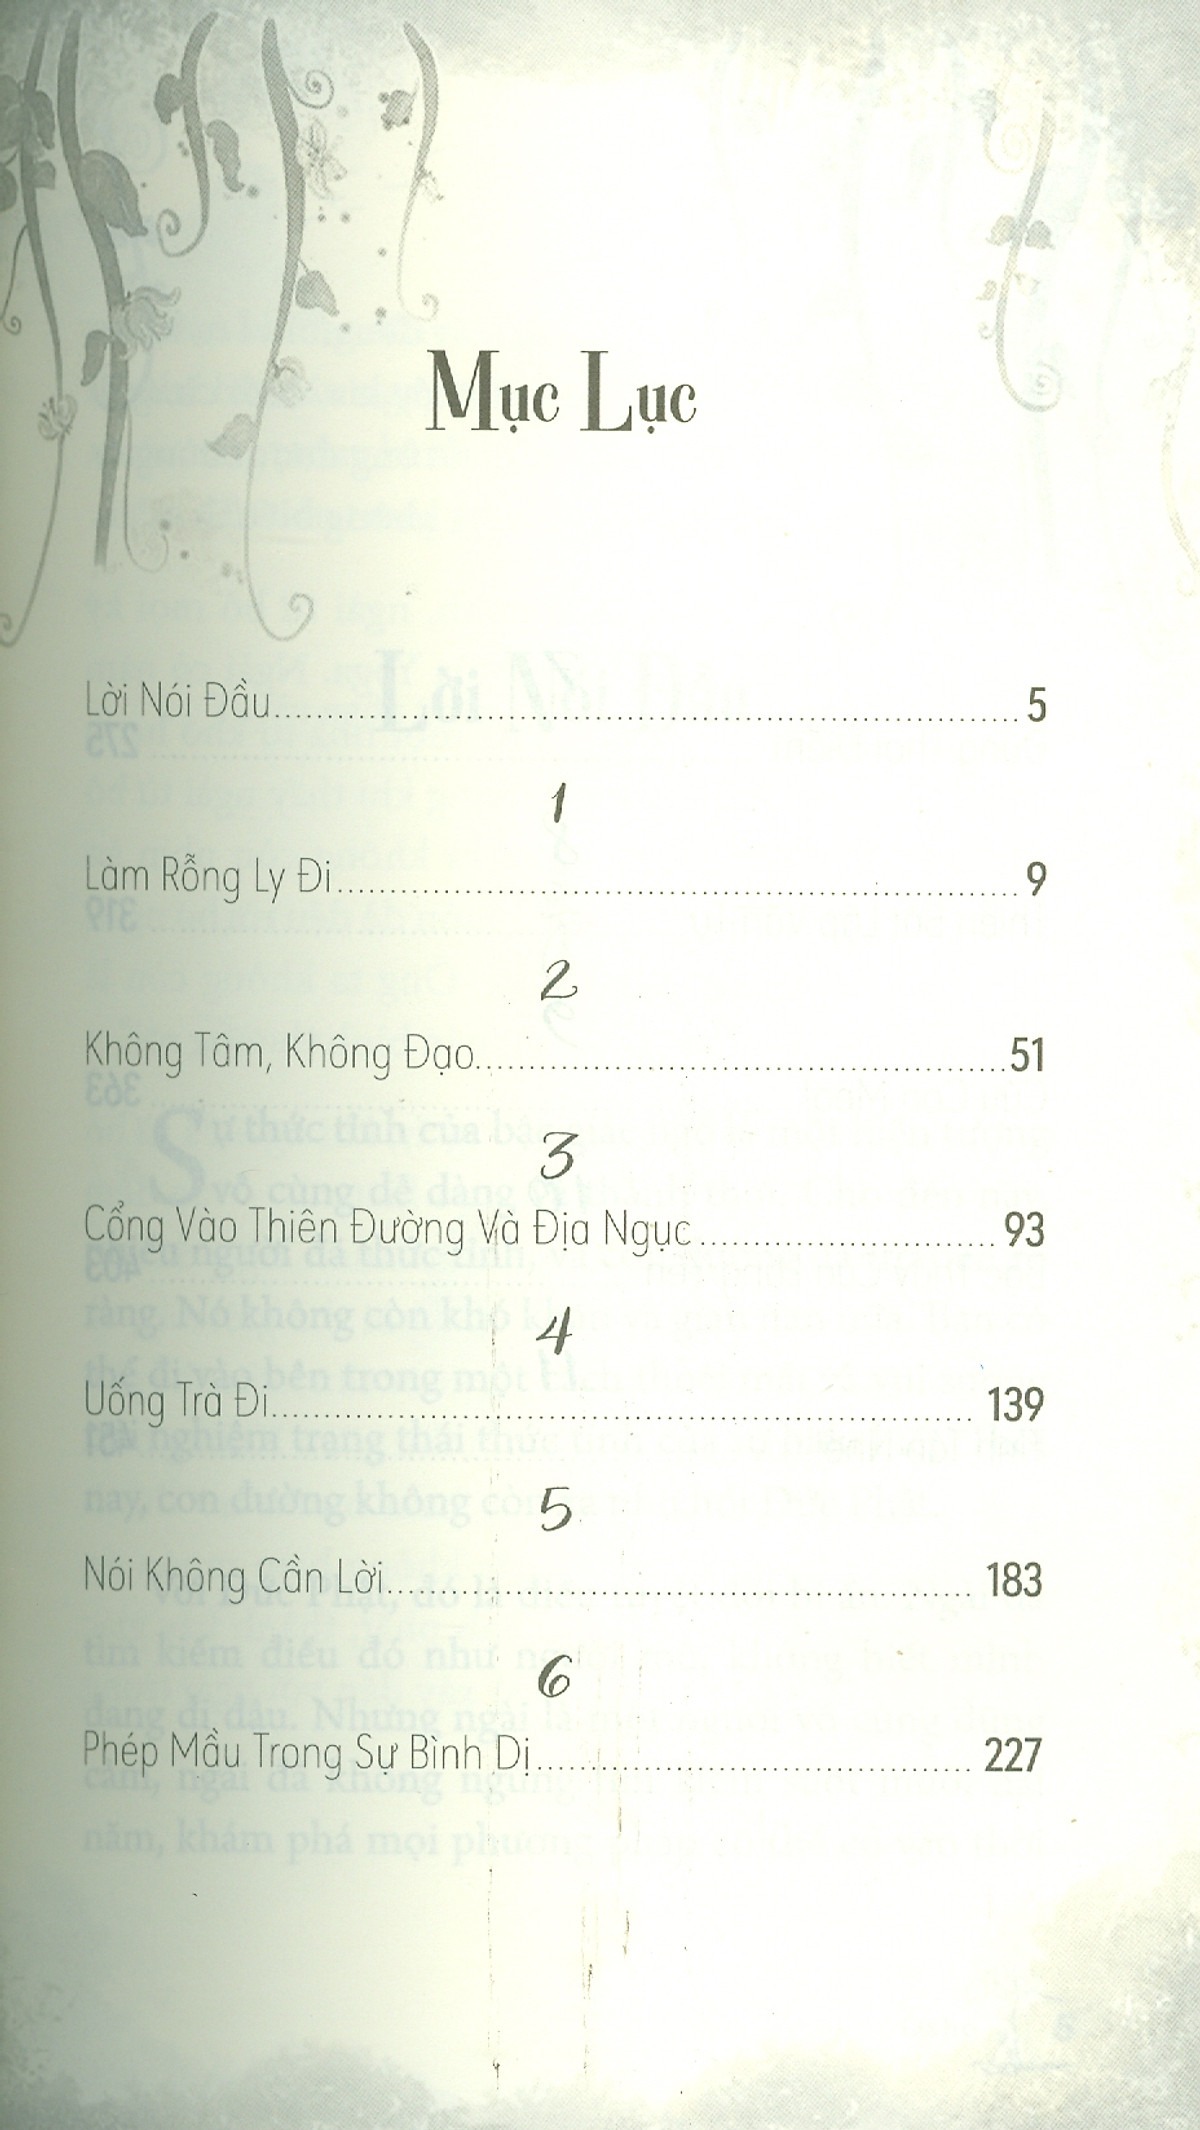 Mục Lục
Lời Nói Đầu........................................................................ 5
1
Làm Rỗng Ly Đi.................................................................. 9
2
Không Tâm, Không Đạo.................................................. 51
3
Cổng Vào Thiên Đường Và Địa Ngục............................ 93
4
Uống Trà Đi.................................................................... 139
5
Nói Không Cần Lời........................................................ 183
6
Phép Mầu Trong Sự Bình Dị.......................................... 227